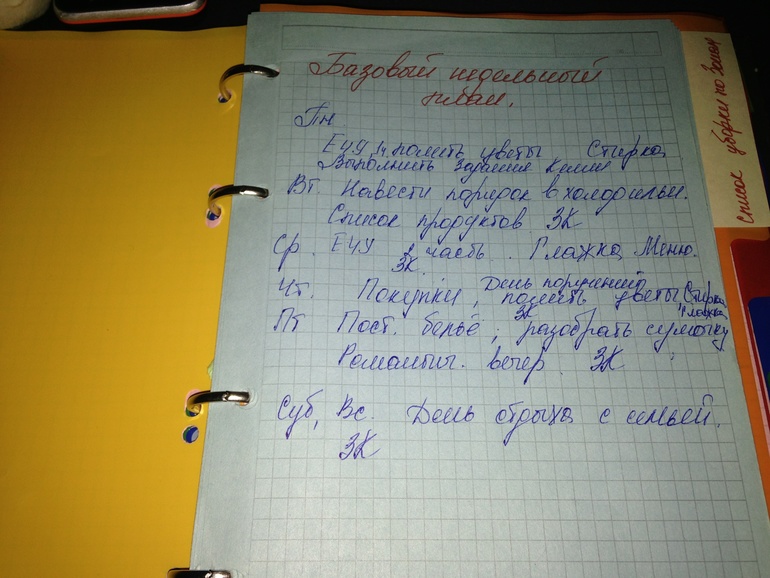 Базовый недельный
план.
Пн
ЕЧУ 1ч. полить цветы Стирка
Выполнить Задания Кемии
Вт. Навести порядок в холодильн.
Список продуктов ЗК
Ср. ЕЧУ часть. Глажка, Меню.
ЗК.
День поручений
Чт. Покупки, полить цветы Стирка
ЗК Глажка
Пт Пост. бельё; разобрать сумочку
Романтич. вечер. ЗК
Суб, Вс. День отдыха с семьёй.
ЗК
Список уборки по Зонам